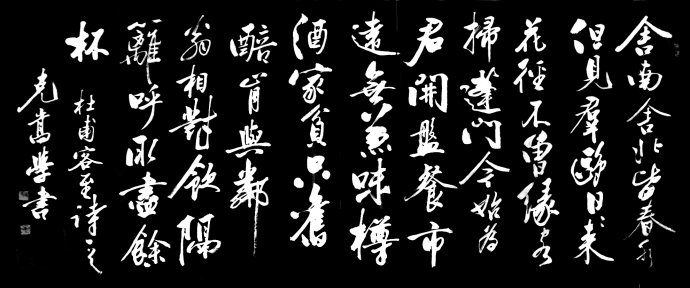 舍南舍北皆春水
但見羣鷗日々来
花徑不曾緣客
掃蓬門今始為
君開盤餐市
遠無兼味樽
酒家貧只舊
醅肯與鄰
翁相對飲隔
籬呼取盡餘
杯
杜甫客至詩一首
克嵩学書